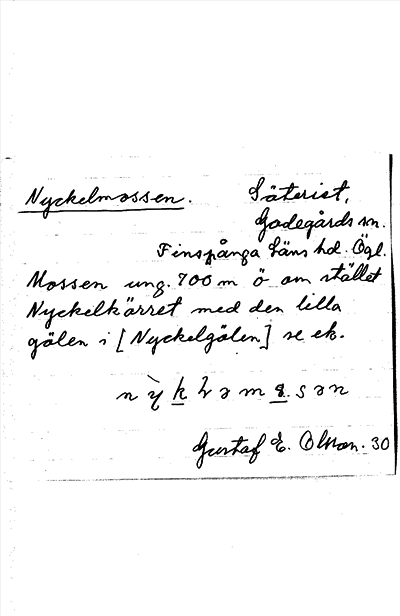 Nyckelmossen. Säteriet,
Godegårds sn.
Finspånga läns hd. Ögl.
Mossen ung. 700 m ö om stället
Nyckelkärret med den lilla
gölen i [Nyckelgölen] se ek.
Gustaf E. Olsson. 30